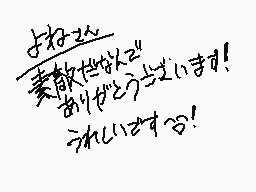 よねさん
素敵だなんて
ありがとうございます!
うれしいです!